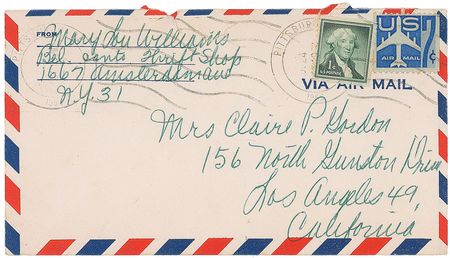 FROM
Mary Lou Williams
Bel. Canto Thrift Shop
1667 Amsterdam Ave
N.Y. 31
PITTSBUR
US 7¢
AIR MAIL
VIA AIR MAIL
Mrs Claire P. Gordon
156 North Gunston Drive
Los Angeles 49,
California